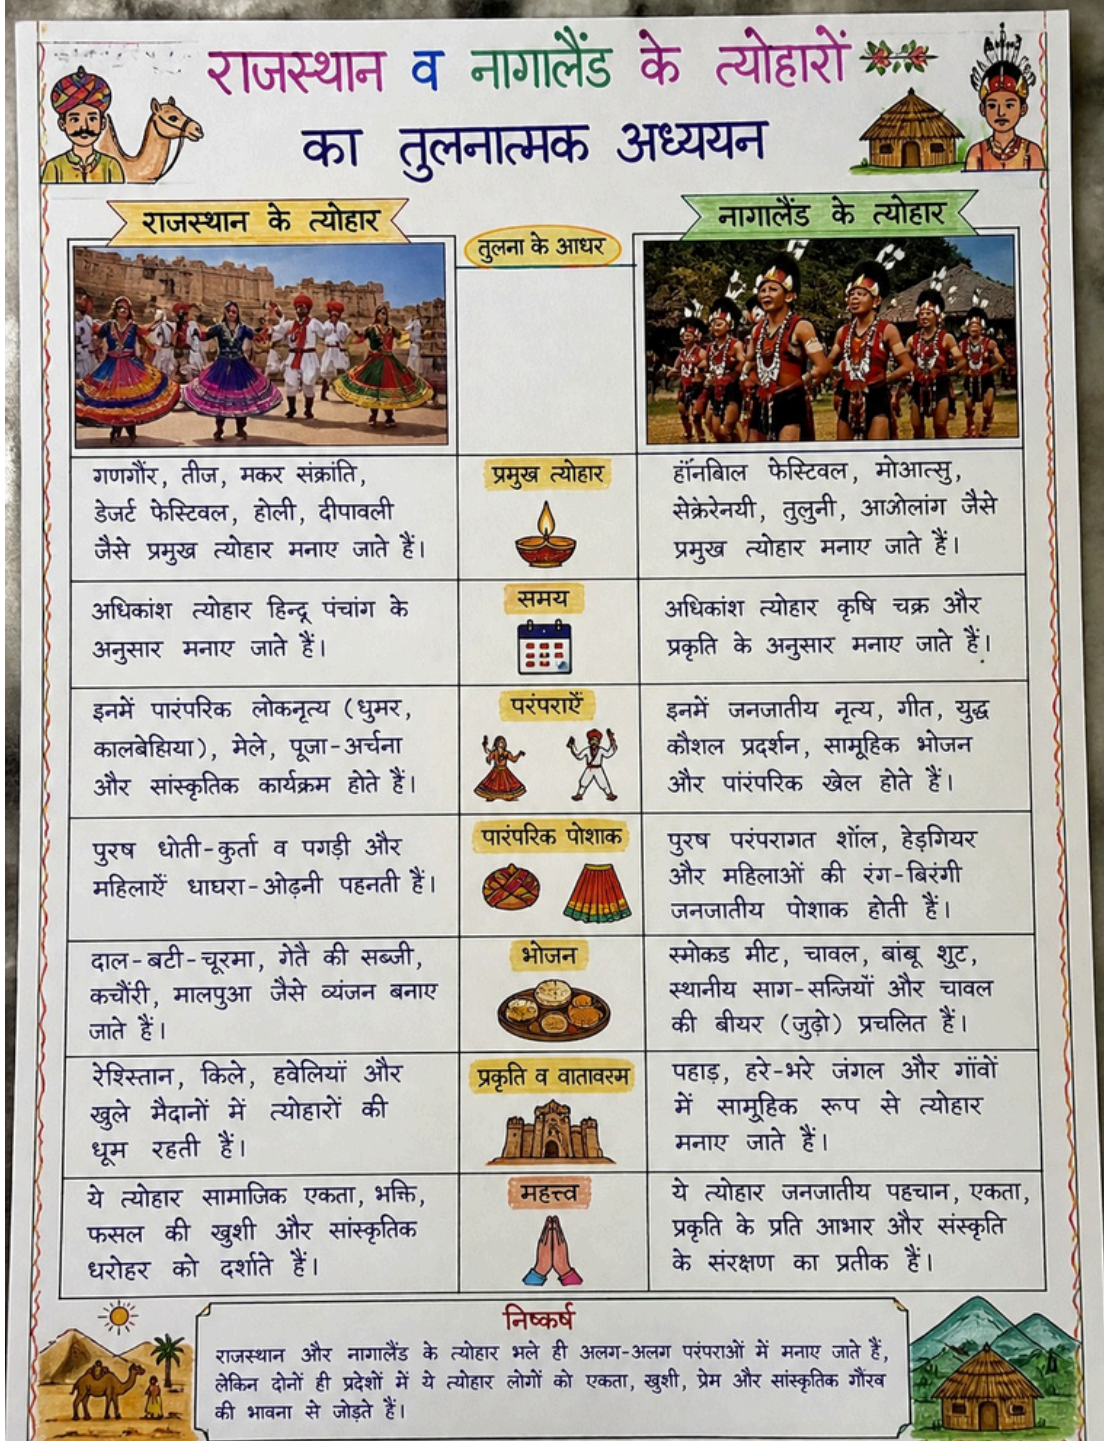 राजस्थान व नागालैंड के त्योहारों
का तुलनात्मक अध्ययन
राजस्थान के त्योहार
तुलना के आधर
नागालैंड के त्योहार
गणगौर, तीज, मकर संक्रांति,
डेजर्ट फेस्टिवल, होली, दीपावली
जैसे प्रमुख त्योहार मनाए जाते हैं।
प्रमुख त्योहार
हॉर्नबिाल फेस्टिवल, मोआत्सु,
सेक्रेरेनयी, तुलुनी, आओलांग जैसे
प्रमुख त्योहार मनाए जाते हैं।
अधिकांश त्योहार हिन्दू पंचांग के
अनुसार मनाए जाते हैं।
समय
अधिकांश त्योहार कृषि चक्र और
प्रकृति के अनुसार मनाए जाते हैं।
इनमें पारंपरिक लोकनृत्य (धुमर,
कालबेह्मिया), मेले, पूजा-अर्चना
और सांस्कृतिक कार्यक्रम होते हैं।
परंपराऐं
इनमें जनजातीय नृत्य, गीत, युद्ध
कौशल प्रदर्शन, सामूहिक भोजन
और पांरंपरिक खेल होते हैं।
पुरष धोती-कुर्ता व पगड़ी और
महिलाऐं धाघरा-ओढ़नी पहनती हैं।
पारंपरिक पोशाक
पुरष परंपरागत शॉल, हेड़गियर
और महिलाओं की रंग-बिरंगी
जनजातीय पोशाक होती हैं।
दाल-बटी-चूरमा, गेतै की सब्जी,
कचौंरी, मालपुआ जैसे व्यंजन बनाए
जाते हैं।
भोजन
स्मोकड मीट, चावल, बांबू शुट,
स्थानीय साग-सब्जियों और चावल
की बीयर (जुढ़ो) प्रचलित हैं।
रेश्स्तिान, किले, हवेलियाॅं और
खुले मैदानों में त्योहारों की
धूम रहती हैं।
प्रकृति व वातावरम
पहाड़, हरे-भरे जंगल और गांवों
में सामुहिक रूप से त्योहार
मनाए जाते हैं।
ये त्योहार सामाजिक एकता, भक्ति,
फसल की खुशी और सांस्कृतिक
धरोहर को दर्शाते हैं।
महत्त्व
ये त्योहार जनजातीय पहचान, एकता,
प्रकृति के प्रति आभार और संस्कृति
के संरक्षण का प्रतीक हैं।
निष्कर्ष
राजस्थान और नागालैंड के त्योहार भले ही अलग-अलग परंपराओं में मनाए जाते हैं,
लेकिन दोनों ही प्रदेशों में ये त्योहार लोगों को एकता, खुशी, प्रेम और सांस्कृतिक गौरव
की भावना से जोड़ते हैं।